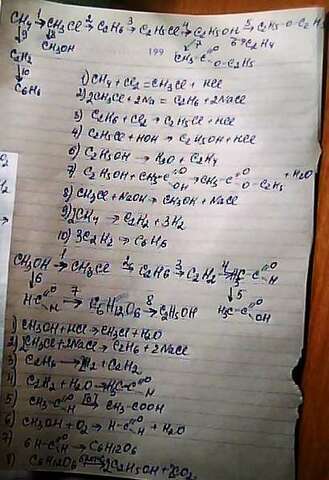 CH4 →1 CH3Cl →2 C2H6 →3 C2H5Cl →4 C2H5OH →5 C2H5-O-C2H5
↓9 ↓8 ↓7 6↘ C2H4
C2H2 CH3OH 199 CH3-C=O O-C2H5
↓10
C6H6
1) CH4 + Cl2 = CH3Cl + HCl
2) 2CH3Cl + 2Na = C2H6 + 2NaCl
3) C2H6 + Cl2 → C2H5Cl + HCl
4) C2H5Cl + HOH → C2H5OH + HCl
6) C2H5OH → H2O + C2H4
7) C2H5OH + CH3-C=O OH → CH3-C=O O-C2H5 + H2O
8) CH3Cl + NaOH → CH3OH + NaCl
9) 2CH4 → C2H2 + 3H2
10) 3C2H2 → C6H6
CH3OH →1 CH3Cl →2 C2H6 →3 C2H2 →4 H3C-C=O H
↓6 ↓5
H-C=O H →7 C6H12O6 →8 C2H5OH H3C-C=O OH
1) CH3OH + HCl → CH3Cl + H2O
2) 2CH3Cl + 2Na → C2H6 + 2NaCl
3) C2H6 → H2 + C2H2
4) C2H2 + H2O → H3C-C=O H
5) CH3-C=O H [O] → CH3-COOH
6) CH3OH + O2 → H-C=O H + H2O
7) 6H-C=O H → C6H12O6
8) C6H12O6 → 2C2H5OH + 2CO2